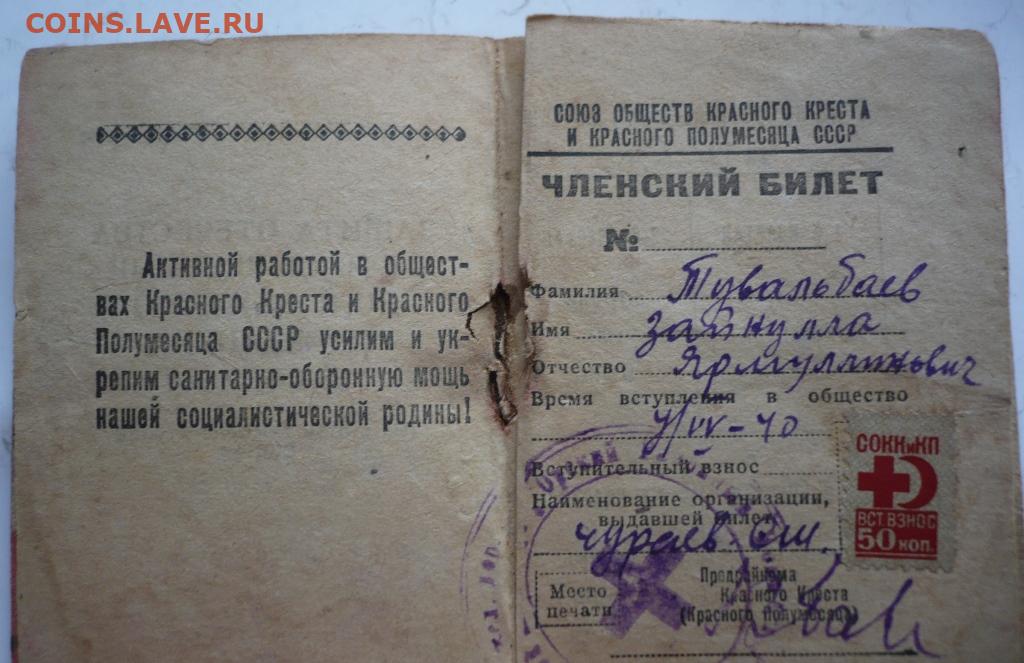 COINS.LAVE.RU
Активной работой в общест-
вах Красного Креста и Красного
Полумесяца СССР усилим и ук-
репим санитарно-оборонную мощь
нашей социалистической родины!
СОЮЗ ОБЩЕСТВ КРАСНОГО КРЕСТА
И КРАСНОГО ПОЛУМЕСЯЦА СССР
ЧЛЕНСКИЙ БИЛЕТ
№
Фамилия Тувальбаев
Имя Зайнулла
Отчество
Время вступления в общество
Вступительный взнос
Наименование организации,
выдавшей билет
СОККиКП
ВСТ. ВЗНОС
50 КОП.
Место
печати
Предрайкома
Красного Креста
(Красного Полумесяца)